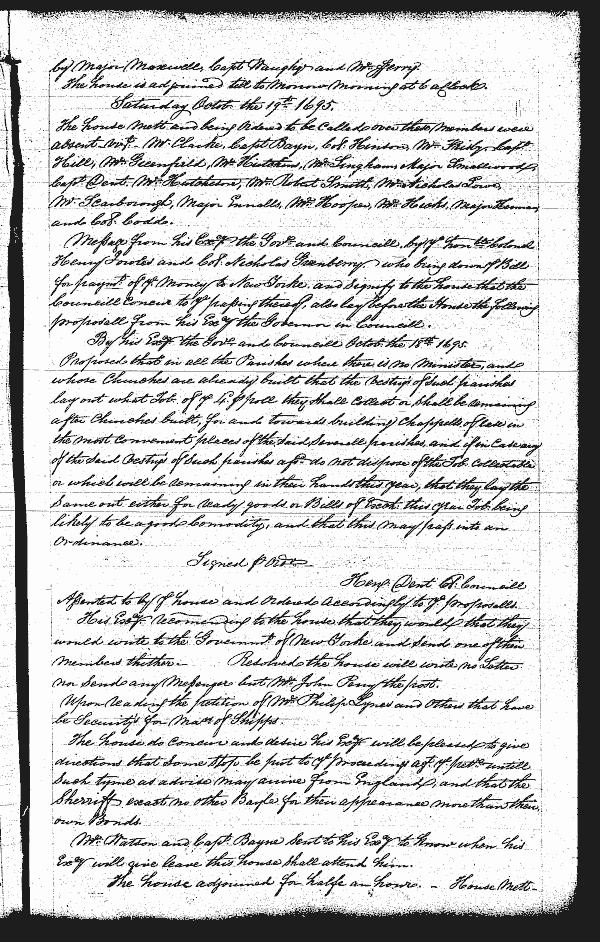 by Major Maxwell, Capt Waughop and Mr Jferry.
The house is adjourned till to Morrow Morning at 6 a Clock.
Saturday Octobr. the 19th 1695.
The house Mett and being Ordered to be Called over these, members were
absent. vizt. Mr Clarke, Capt. Bayn, Col. Hinson, Mr. Frisby, Capt
Hill, Mr. Greenfield, Mr Hutchins, Mr. Bingham, Major Smallwood,
Capt. Dent. Mr. Hutcheson, Mr. Robert Smith, Mr. Nicholas Lowe,
Mr. Scarborough, Major Ennalls, Mr. Hooper, Mr. Hicks, Major Herman,
and Col. Codds.
Message from his Excy. the Govr. and Councill, by ye honble. Colonel
Henry Jowles and Col. Nicholas Greenberry, who bring down ye Bill
for paymt. of ye Money to New Yorke, and Signify to the house that the
Councill Concur to ye passing thereof, also lay before the House the following
proposall from his Excy the Governor in Councill.
By his Excy. the Govr. and Councill Octobr. the 18th. 1695
Proposed that in all the Parishes where there is no Minister, and
whose Churches are already built that the Vestrys of Such parishes
lay out what Tob. of ye 40 p poll they Shall Collect or Shall be remaining
after Churches built, for and towards building Chappells of Ease in
the most Convenient places of the Said Severall parishes, and if in Case any
of the Said Vestrys of Such parishes afd. do not dispose of the Tob. Collectable
or which will be remaining in their hands this year, that they lay the
Same out either for ready goods or Bills of Excha. this year Tob. being
likely to be a good Comodity, and that this may pass into an
Ordinance.
Signed p Order
Heny. Dent Cl. Councill
Assented to by ye house and Ordered Accordingly to ye proposalls
His Excy. recomending to the house that they would that they
would write to the Governmt. of New Yorke and Send one of their
members thither - Resolved the house will write no Letter
nor Send any Messenger but Mr. John Perry the post.
Upon reading the petition of Mr. Philip Lynes and Others that have
be Securitys for Mars. of Shipps.
The house do Concur and desire his Excy will be pleased to give
directions that Some Stop be put to ye proceedings agt. ye petrs. untill
Such tyme as advise may arrive from England, and that the
Sherriff exact no other Bayle for their appearance more than their
own Bonds
Mr. Watson and Capt. Bayne Sent to his Excy to know when his
Excy will give leave this house Shall attend him.
The house adjourned for halfe an houre. - House Mett-